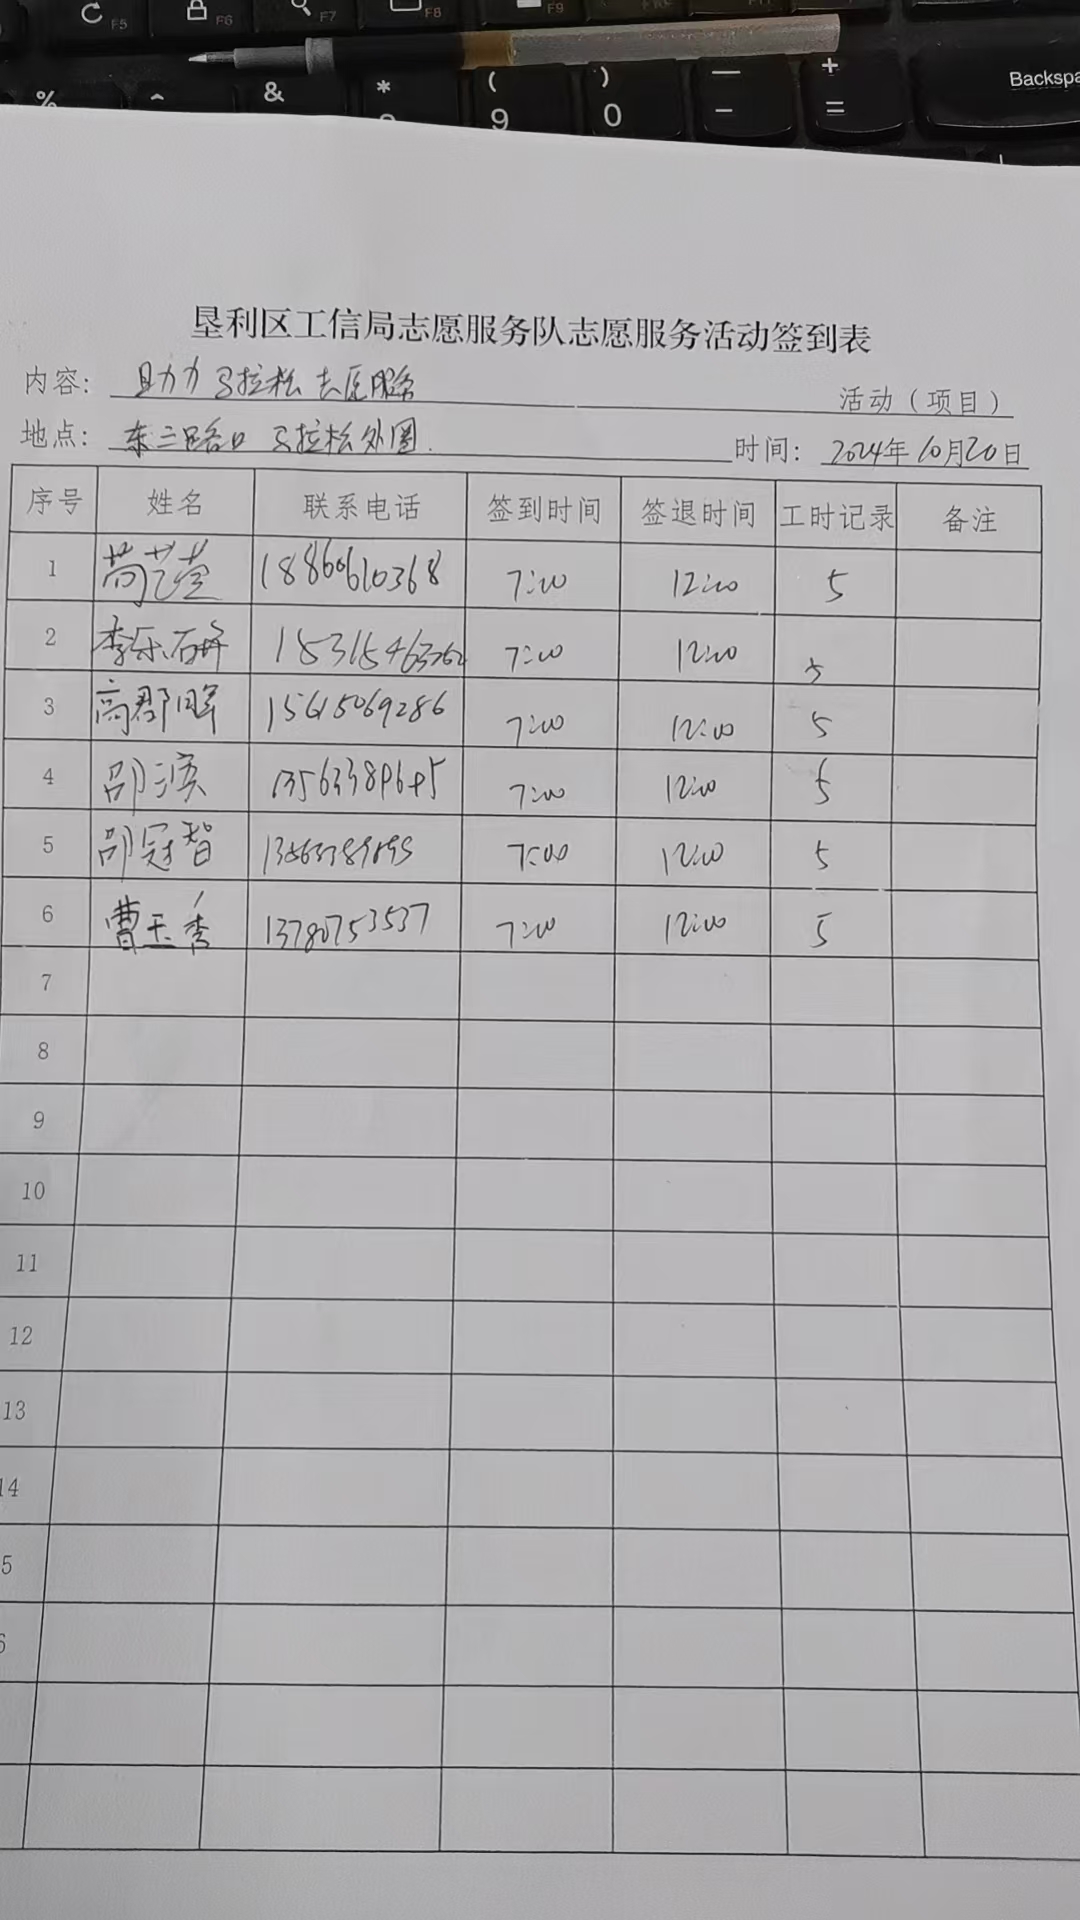 F5 F6 F7 F8 F9
% ^ & * ( ) — +
9 0 - = Backspa
垦利区工信局志愿服务队志愿服务活动签到表
内容: 助力马拉松志愿服务 活动（项目）
地点: 东三路口 马拉松外围. 时间: 2024年10月20日
序号 姓名 联系电话 签到时间 签退时间 工时记录 备注
1 18860610368 7:00 12:00 5
2 李乐 7:00 12:00 5
3 高郡晖 15615069286 7:00 12:00 5
4 邵滨 7:00 12:00 5
5 邵冠智 7:00 12:00 5
6 曹玉秀 13780753537 7:00 12:00 5
7
8
9
10
11
12
13
14
5
6